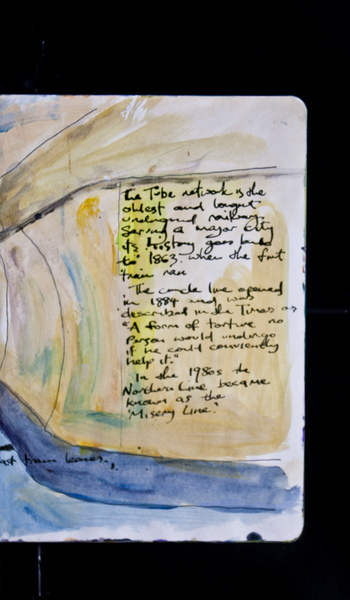 The Tube network is the
oldest and longest
underground railway.
Serving a major city
its history goes back
to 1863. when the first
train ran
The circle line opened
in 1884 and was
described in the Times as
"A form of torture no
person would undergo
if he could conveniently
help it."
In the 1980s the
Northern Line became
known as the
'Misery Line.'
ast train leaves..